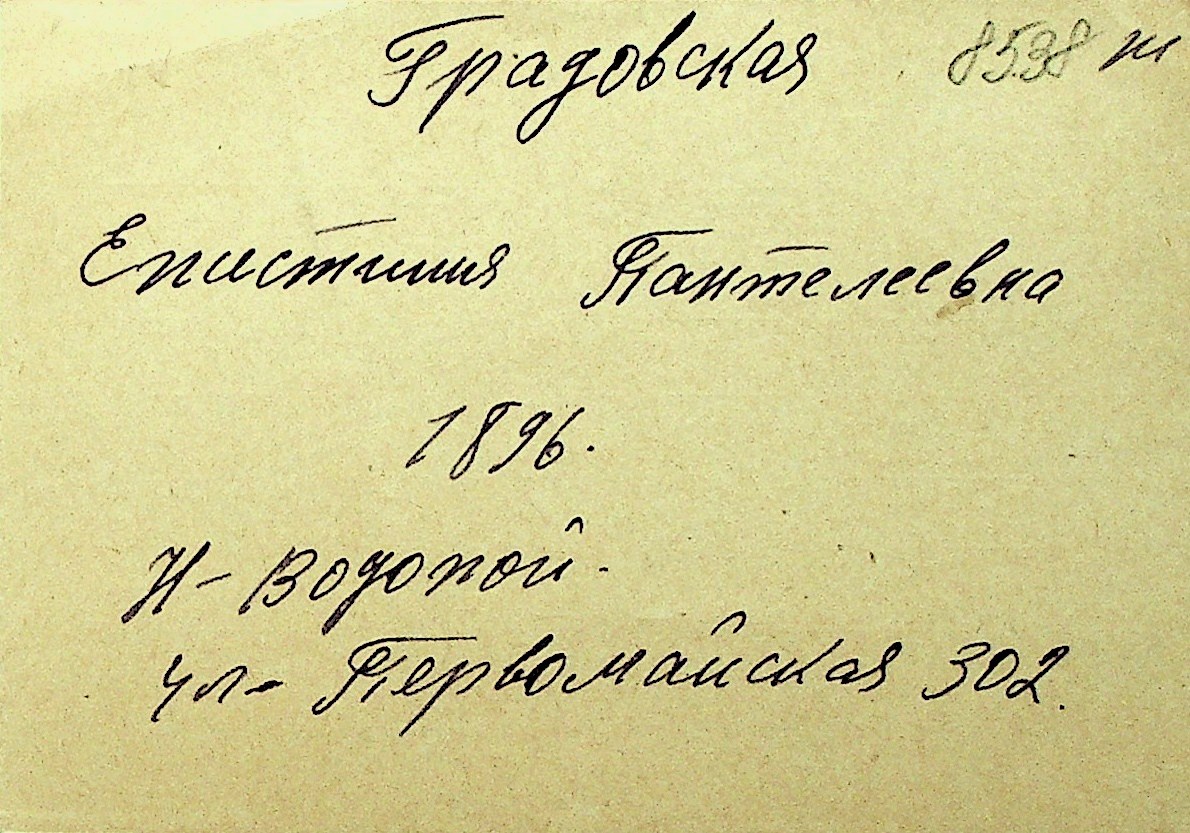 Градовская 8538 т
Епистимия Пантелеевна
1896.
Н- Водопой.
ул- Первомайская 302.